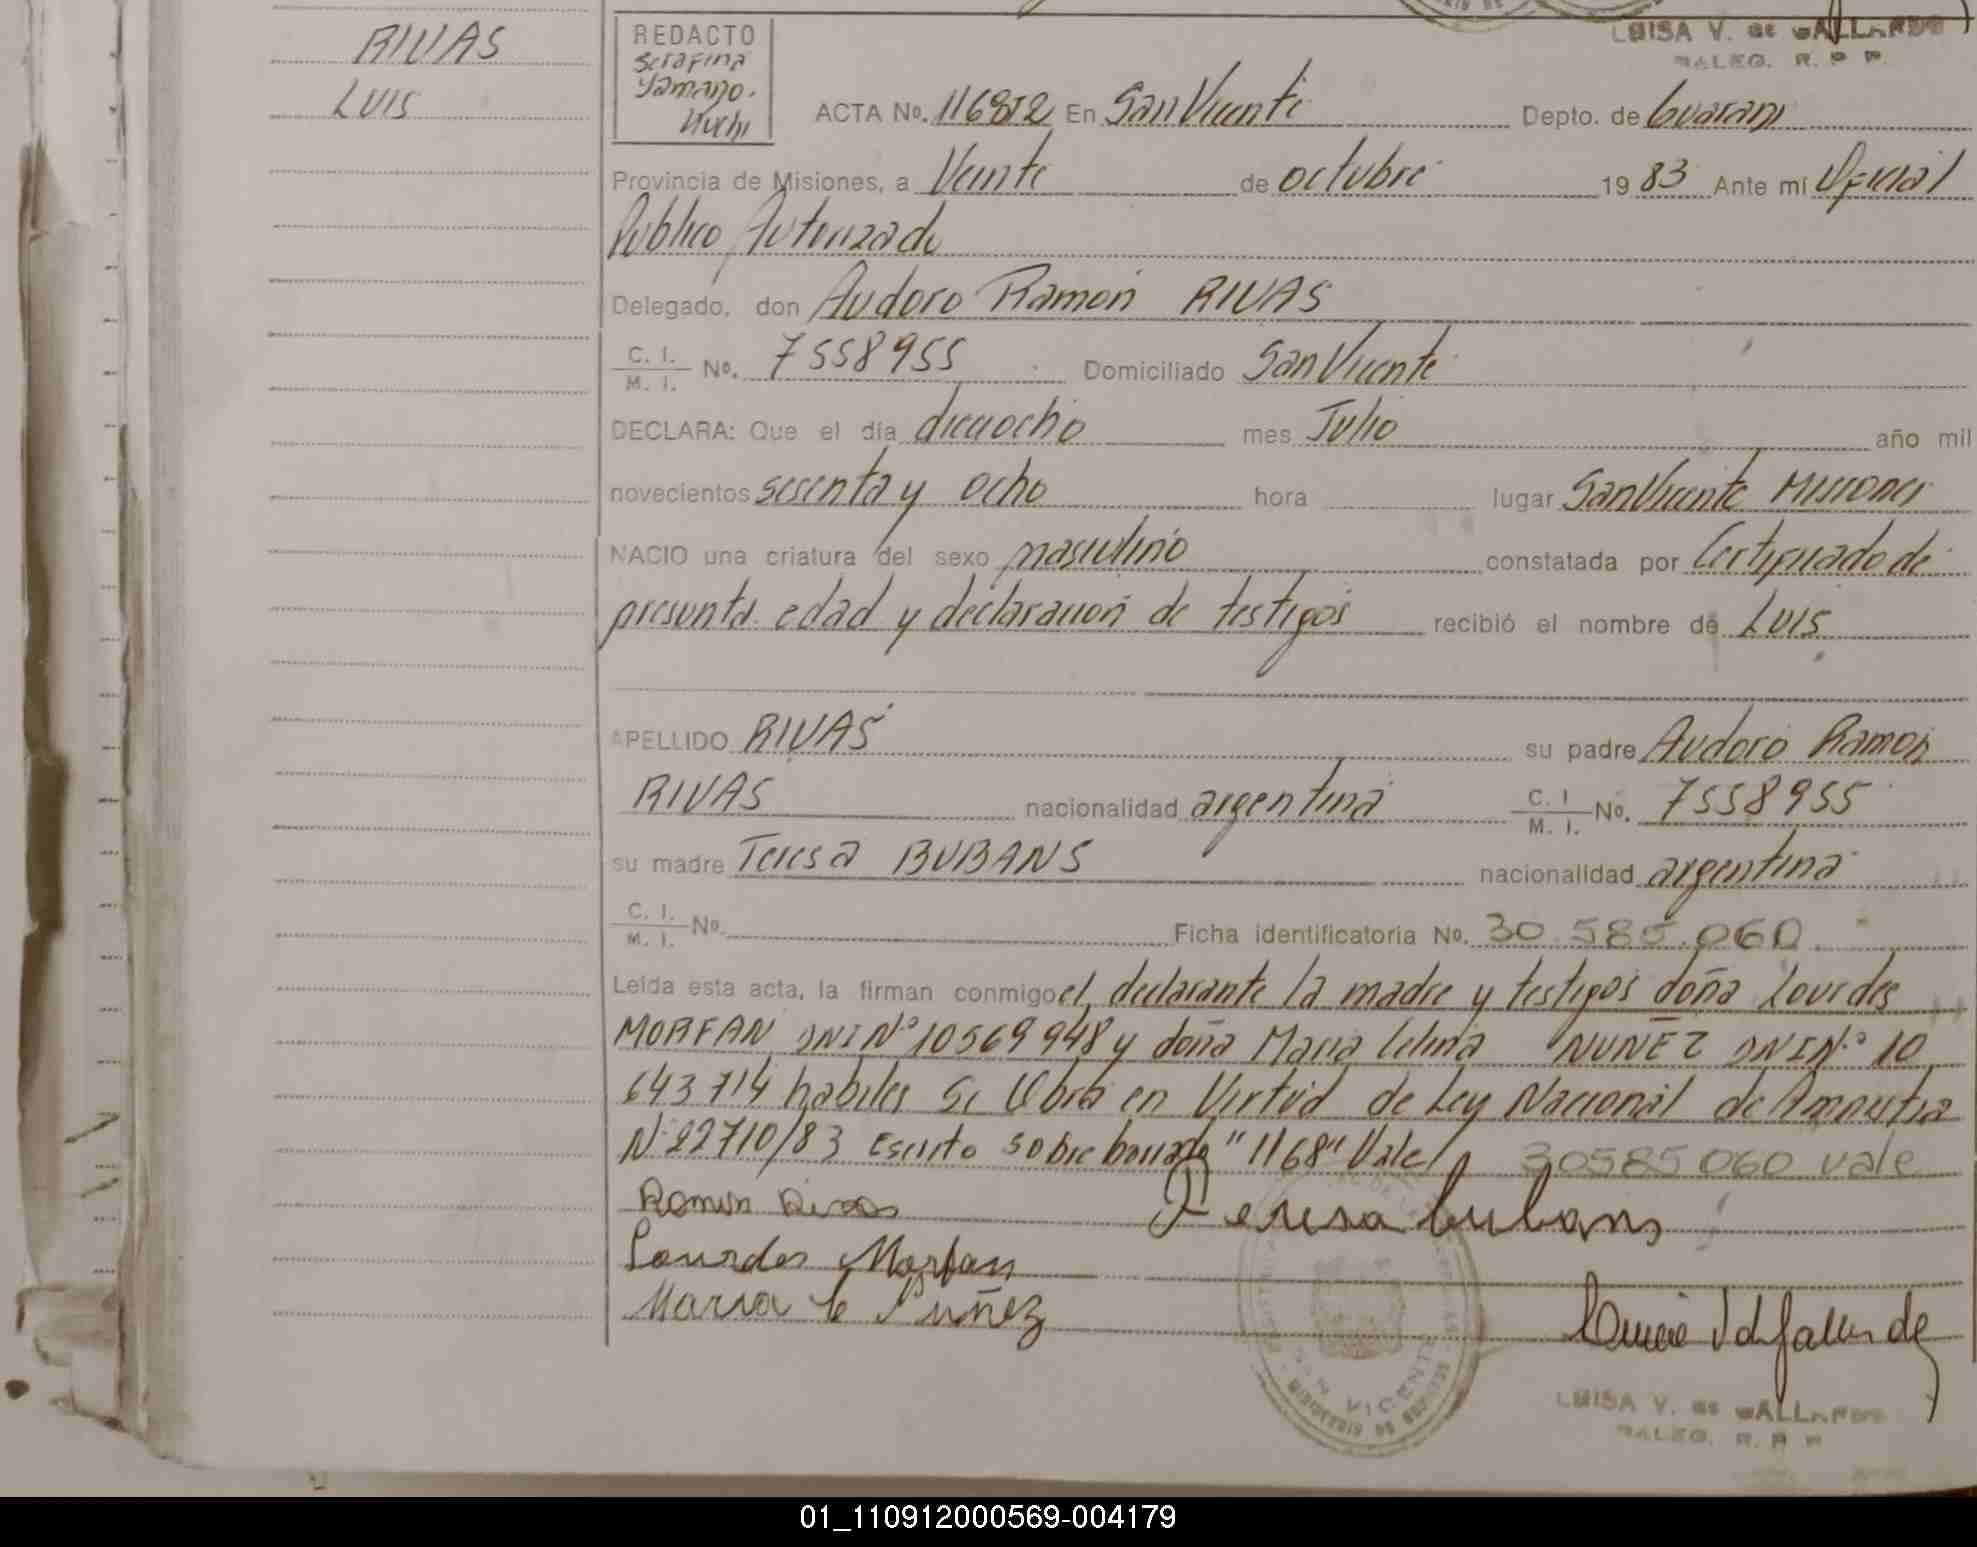 RIVAS
LUIS
REDACTO
Serafina
Yamaajo.
LUISA V. de GALLARDO
DALEG. R. P P.
ACTA No. En San Vicente Depto. de Guarani
Provincia de Misiones, a Veinte de octubre 19 83 Ante mí Oficial
Publico Autorizado
Delegado, don Audoro Ramon RIVAS
C. I. / M. I. No. 7558955 Domiciliado San Vicente
DECLARA: Que el día dieciocho mes Julio año mil
novecientos sesenta y ocho hora lugar San Vicente Misiones
NACIO una criatura del sexo masculino constatada por Certificado de
presunta edad y declaracion de testigos recibió el nombre de LUIS
APELLIDO RIVAS su padre Audoro Ramon
RIVAS nacionalidad argentina C. I / M. I. No. 7558955
su madre Teresa BUBANS nacionalidad argentina
C. I. / M. I. No. Ficha identificatoria No. 30.585.060.
Leída esta acta, la firman conmigo el declarante la madre y testigos doña Lourdes
MORFAN DNI Nº 10569948 y doña Maria Celina NUÑEZ DNI Nº 10
643714 habiles Se labra en Virtud de Ley Nacional de Amnistia
Nº 22710/83 Escrito sobre borrado "1168" Vale 30585060 vale
Ramon Rivas Teresa bubans
Lourdes Morfan
Maria C Nuñez
SAN VICENTE
LUISA V. de GALLARDO
DALEG. R. P P
01_110912000569-004179